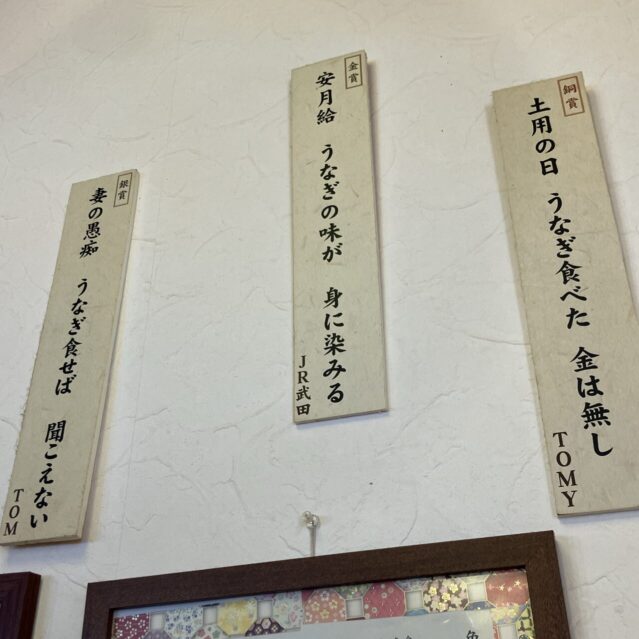 銅賞
土用の日 うなぎ食べた 金は無し
TOMY
金賞
安月給 うなぎの味が 身に染みる
JR武田
銀賞
妻の愚痴 うなぎ食せば 聞こえない
TOM